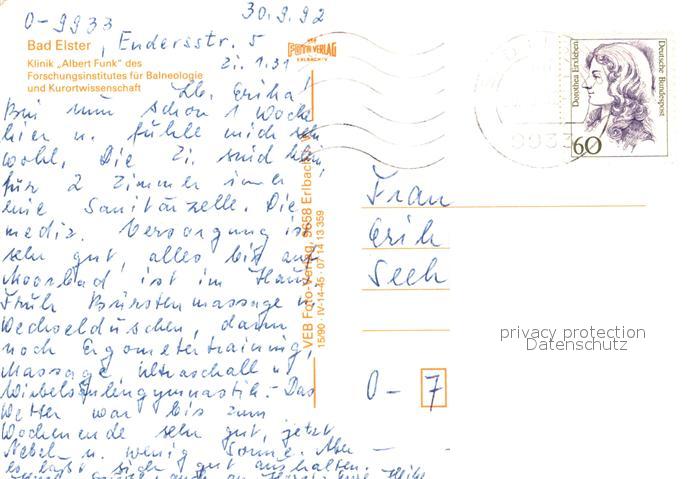 O-9933 30.9.92
Bad Elster, Endersstr. 5
Klinik „Albert Funk" des Zi. 1.31
Forschungsinstitutes für Balneologie
und Kurortwissenschaft
Lb. Erika!
Bin nun schon 1 Woche
hier u. fühle mich sehr
wohl. Die Zi. sind
für 2 Zimmer immer
eine Sanitärzelle. Die
mediz. Versorgung ist
sehr gut, alles bis auf
Moorbad ist im Haus.
Früh Bürstenmassage u.
Wechselduschen, dann
noch Ergometertraining,
Massage Ultraschall u.
Wirbelsäulengymnastik. - Das
Wetter war bis zum
Wochenende sehr gut, jetzt
Nebel u. wenig Sonne. Aber -
es läßt sich gut aushalten.
FOTO VERLAG
ERLBACH/V
VEB Foto-Verlag, 9658 Erlbach
15/90 IV-14-45 07 14 13 359
Dorothea Erxleben
Deutsche Bundespost
60
9933
Frau
Erik
Seeh
O- 7
privacy protection
Datenschutz